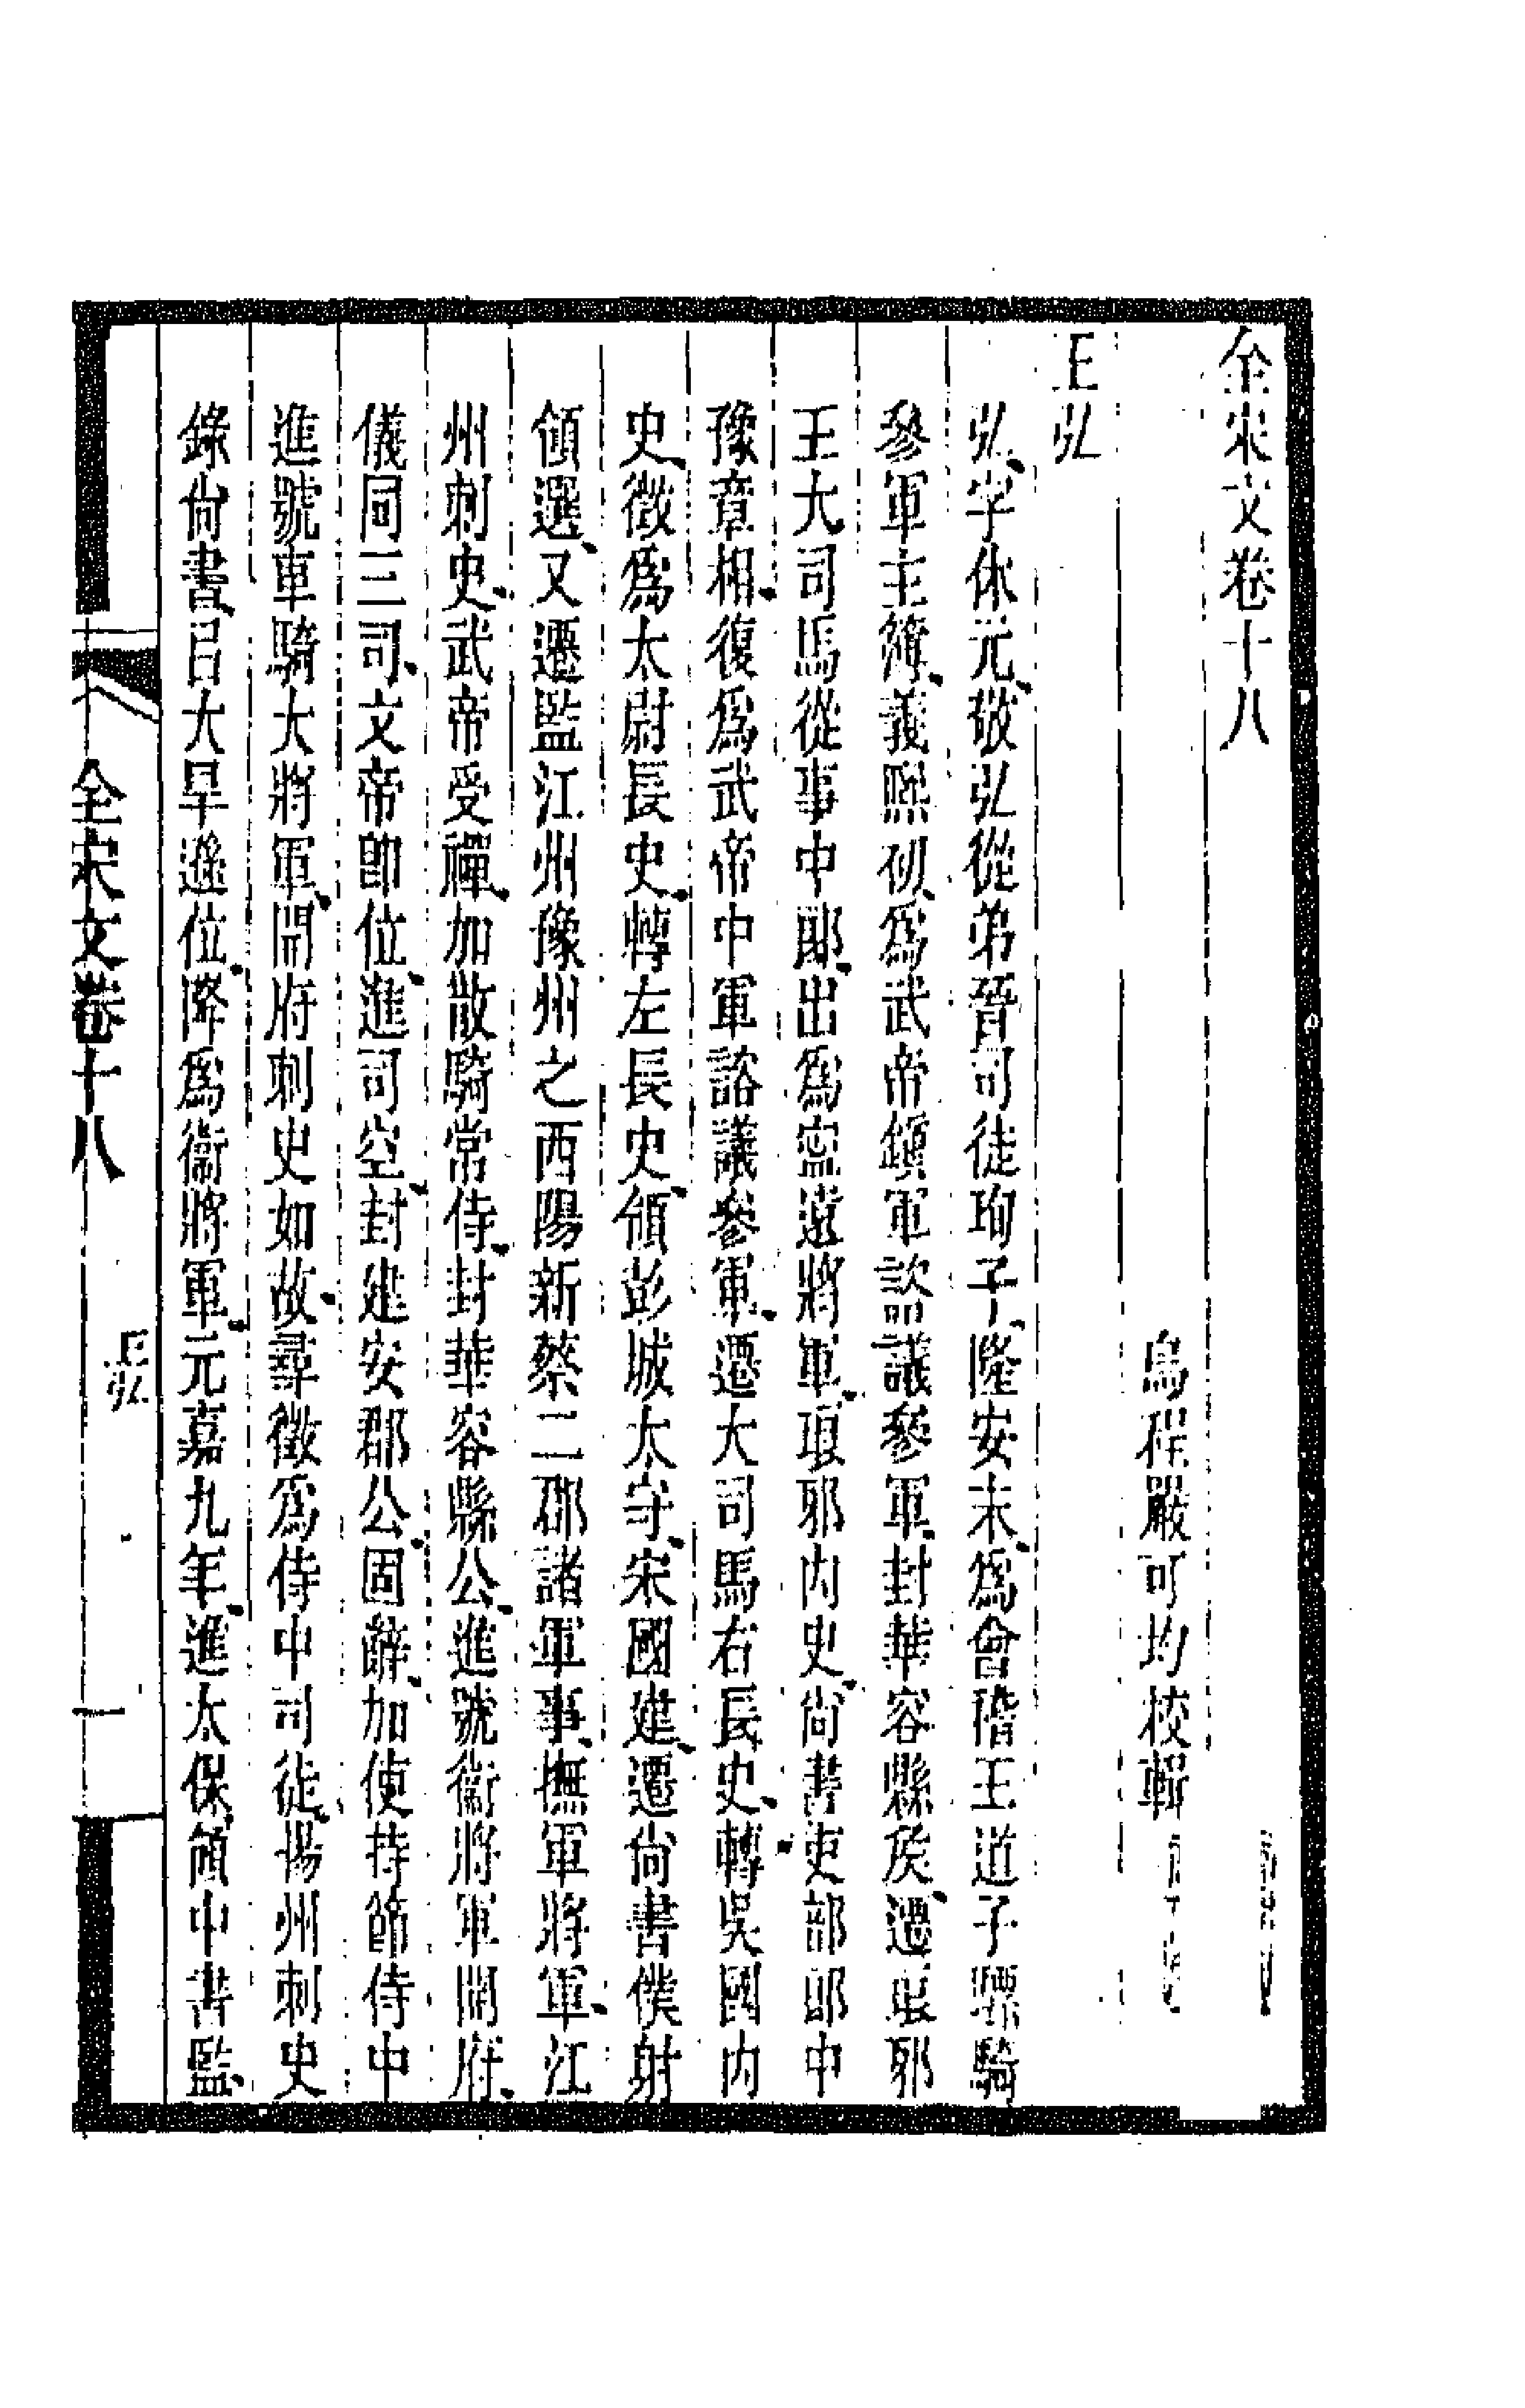 全宋文卷十八
烏程嚴可均校輯
王弘
弘字休元敬弘從弟晉司徒珣子隆安末爲會稽王道子驃騎
參軍主簿義熙初爲武帝鎮軍諮議參軍封華容縣矦遷琅邪
王大司馬從事中郞出爲寍遠將軍琅邪內史尙書吏部郞中
豫章相復爲武帝中軍諮議參軍遷大司馬右長史轉吳國內
史徵爲太尉長史轉左長史領彭城太守宋國建遷尙書僕射
領選又遷監江州豫州之西陽新蔡二郡諸軍事撫軍將軍江
州刺史武帝受禪加散騎常侍封華容縣公進號衞將軍開府
儀同三司文帝卽位進司空封建安郡公固辭加使持節侍中
進號車騎大將軍開府刺史如故尋徵爲侍中司徒揚州刺史
錄尙書㠯大旱遜位降爲衞將軍元嘉九年進太保領中書監
全宋文卷十八
王弘
一